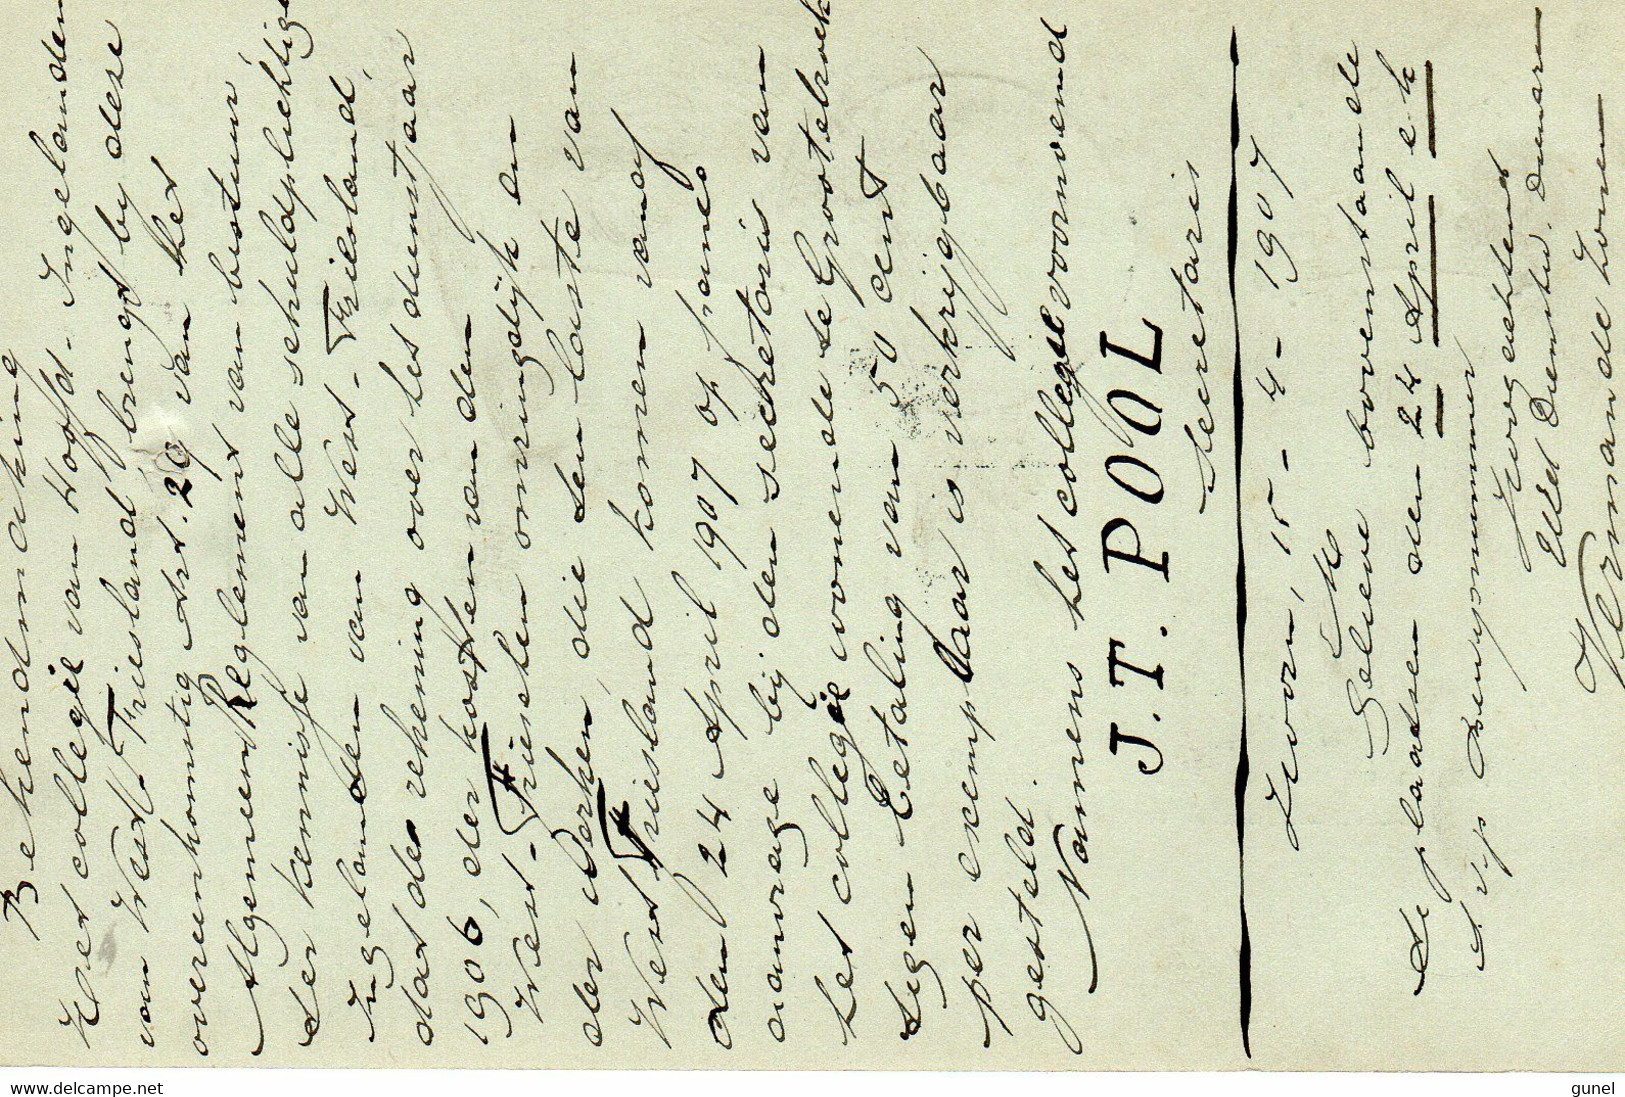 Bekendmaking
Het collegie van Hoofd-Ingelanden
van West-Friesland, brengt by deze
overeenkomstig Art. 29 van het
Algemeen Reglement van bestuur,
ter kennisse van alle schuldplichtige
Ingelanden van West-Friesland,
dat de rekening over het dienstjaar
1906, der kosten van den
West-Frieschen omringdijk en
der werken, die ten laste van
West Friesland komen vanaf
den 24 April 1907 op franco
aanvrage bij den secretaris van
het collegie voornd te Grootebroek
tegen betaling van 50 cent
per exemplaar is verkrijgbaar
gesteld.
Namens het collegie voornoemd
J. T. POOL
secretaris
Hoorn, 15-4-1907
M
Gelieve bovenstaande
te plaatsen den 24 April e k
s. v. p. bewijsnummer
Hoogachtend
Uwd Dienstw. Dienaren
Vermande Zonen
www.delcampe.net
gunel